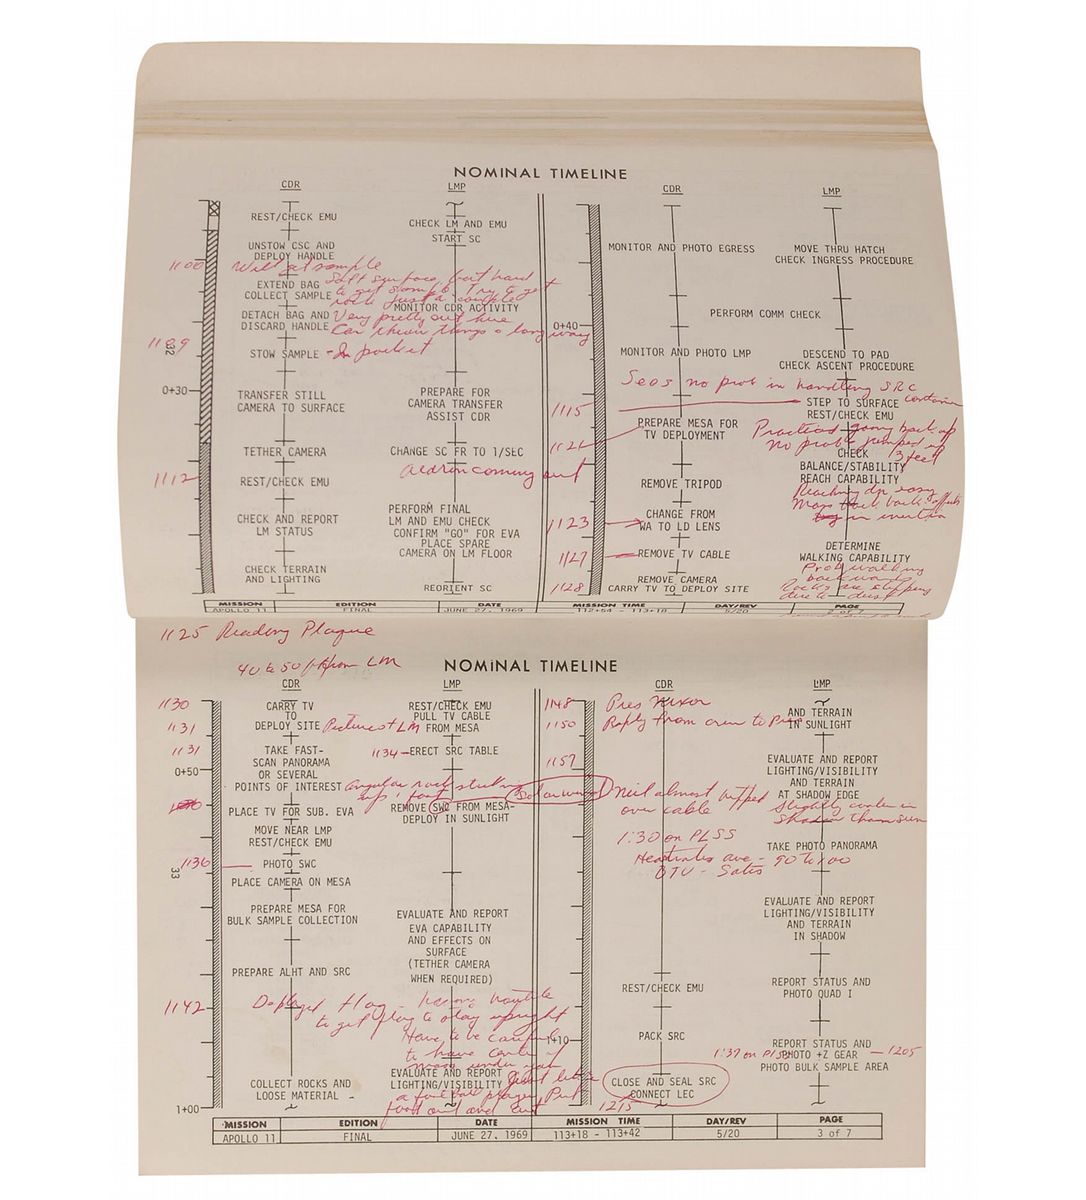 NOMINAL TIMELINE
CDR
LMP
REST/CHECK EMU
CHECK LM AND EMU
START SC
UNSTOW CSC AND
DEPLOY HANDLE
1108
Will get sample
EXTEND BAG
COLLECT SAMPLE
Soft surface, but hard
to get sample. Try to get
rock just a couple
MONITOR CDR ACTIVITY
DETACH BAG AND
DISCARD HANDLE
Very pretty out here
Can throw things a long way
1109
32
STOW SAMPLE - In pocket
0+30
TRANSFER STILL
CAMERA TO SURFACE
PREPARE FOR
CAMERA TRANSFER
ASSIST CDR
TETHER CAMERA
CHANGE SC FR TO 1/SEC
Aldrin coming out
1112
REST/CHECK EMU
CHECK AND REPORT
LM STATUS
PERFORM FINAL
LM AND EMU CHECK
CONFIRM "GO" FOR EVA
PLACE SPARE
CAMERA ON LM FLOOR
CHECK TERRAIN
AND LIGHTING
REORIENT SC
CDR
LMP
MONITOR AND PHOTO EGRESS
MOVE THRU HATCH
CHECK INGRESS PROCEDURE
PERFORM COMM CHECK
0+40
MONITOR AND PHOTO LMP
DESCEND TO PAD
CHECK ASCENT PROCEDURE
Sees no prob in handling SRC
container
1115
STEP TO SURFACE
REST/CHECK EMU
1121
PREPARE MESA FOR
TV DEPLOYMENT
Practiced going back up
No prob jumped up
3 feet
CHECK
BALANCE/STABILITY
REACH CAPABILITY
REMOVE TRIPOD
Reaching dn easy
Mass back affects
in inertia
1123
CHANGE FROM
WA TO LD LENS
1127
REMOVE TV CABLE
DETERMINE
WALKING CAPABILITY
Prob walking
backwards
Rocks are slipping
due to dust
1128
REMOVE CAMERA
CARRY TV TO DEPLOY SITE
MISSION
EDITION
DATE
MISSION TIME
DAY/REV
PAGE
APOLLO 11
FINAL
JUNE 27, 1969
112+54 - 113+18
5/20
2 of 7
1125 Reading Plaque
40 to 50 ft from LM
NOMINAL TIMELINE
CDR
LMP
1130
CARRY TV
TO
DEPLOY SITE
REST/CHECK EMU
PULL TV CABLE
FROM MESA
1131
Pictures LM
1131
TAKE FAST-
SCAN PANORAMA
OR SEVERAL
POINTS OF INTEREST
1134 - ERECT SRC TABLE
0+50
angular rock sticking
up 1 foot
Solar wind
PLACE TV FOR SUB. EVA
REMOVE SWC FROM MESA-
DEPLOY IN SUNLIGHT
MOVE NEAR LMP
REST/CHECK EMU
1136
PHOTO SWC
33
PLACE CAMERA ON MESA
PREPARE MESA FOR
BULK SAMPLE COLLECTION
EVALUATE AND REPORT
EVA CAPABILITY
AND EFFECTS ON
SURFACE
(TETHER CAMERA
WHEN REQUIRED)
PREPARE ALHT AND SRC
1142
Deployed flag - having trouble
to get flag to stay upright
Have to be careful
to have center of
mass under you
EVALUATE AND REPORT
LIGHTING/VISIBILITY
COLLECT ROCKS AND
LOOSE MATERIAL -
Just like
a football player Put
foot out and cut
1+00
CDR
LMP
1148
Pres Nixon
1150
Reply from crew to Pres
AND TERRAIN
IN SUNLIGHT
1157
EVALUATE AND REPORT
LIGHTING/VISIBILITY
AND TERRAIN
AT SHADOW EDGE
Neil almost tripped
over cable
Slightly cooler in
shadow than sun
1:30 on PLSS
Heartrates ave - 90 to 100
BTU - Satis
TAKE PHOTO PANORAMA
EVALUATE AND REPORT
LIGHTING/VISIBILITY
AND TERRAIN
IN SHADOW
REST/CHECK EMU
REPORT STATUS AND
PHOTO QUAD I
PACK SRC
1+10
1:37 on PLSS
REPORT STATUS AND
PHOTO +Z GEAR - 1205
PHOTO BULK SAMPLE AREA
CLOSE AND SEAL SRC
CONNECT LEC
1215
MISSION
EDITION
DATE
MISSION TIME
DAY/REV
PAGE
APOLLO 11
FINAL
JUNE 27, 1969
113+18 - 113+42
5/20
3 of 7